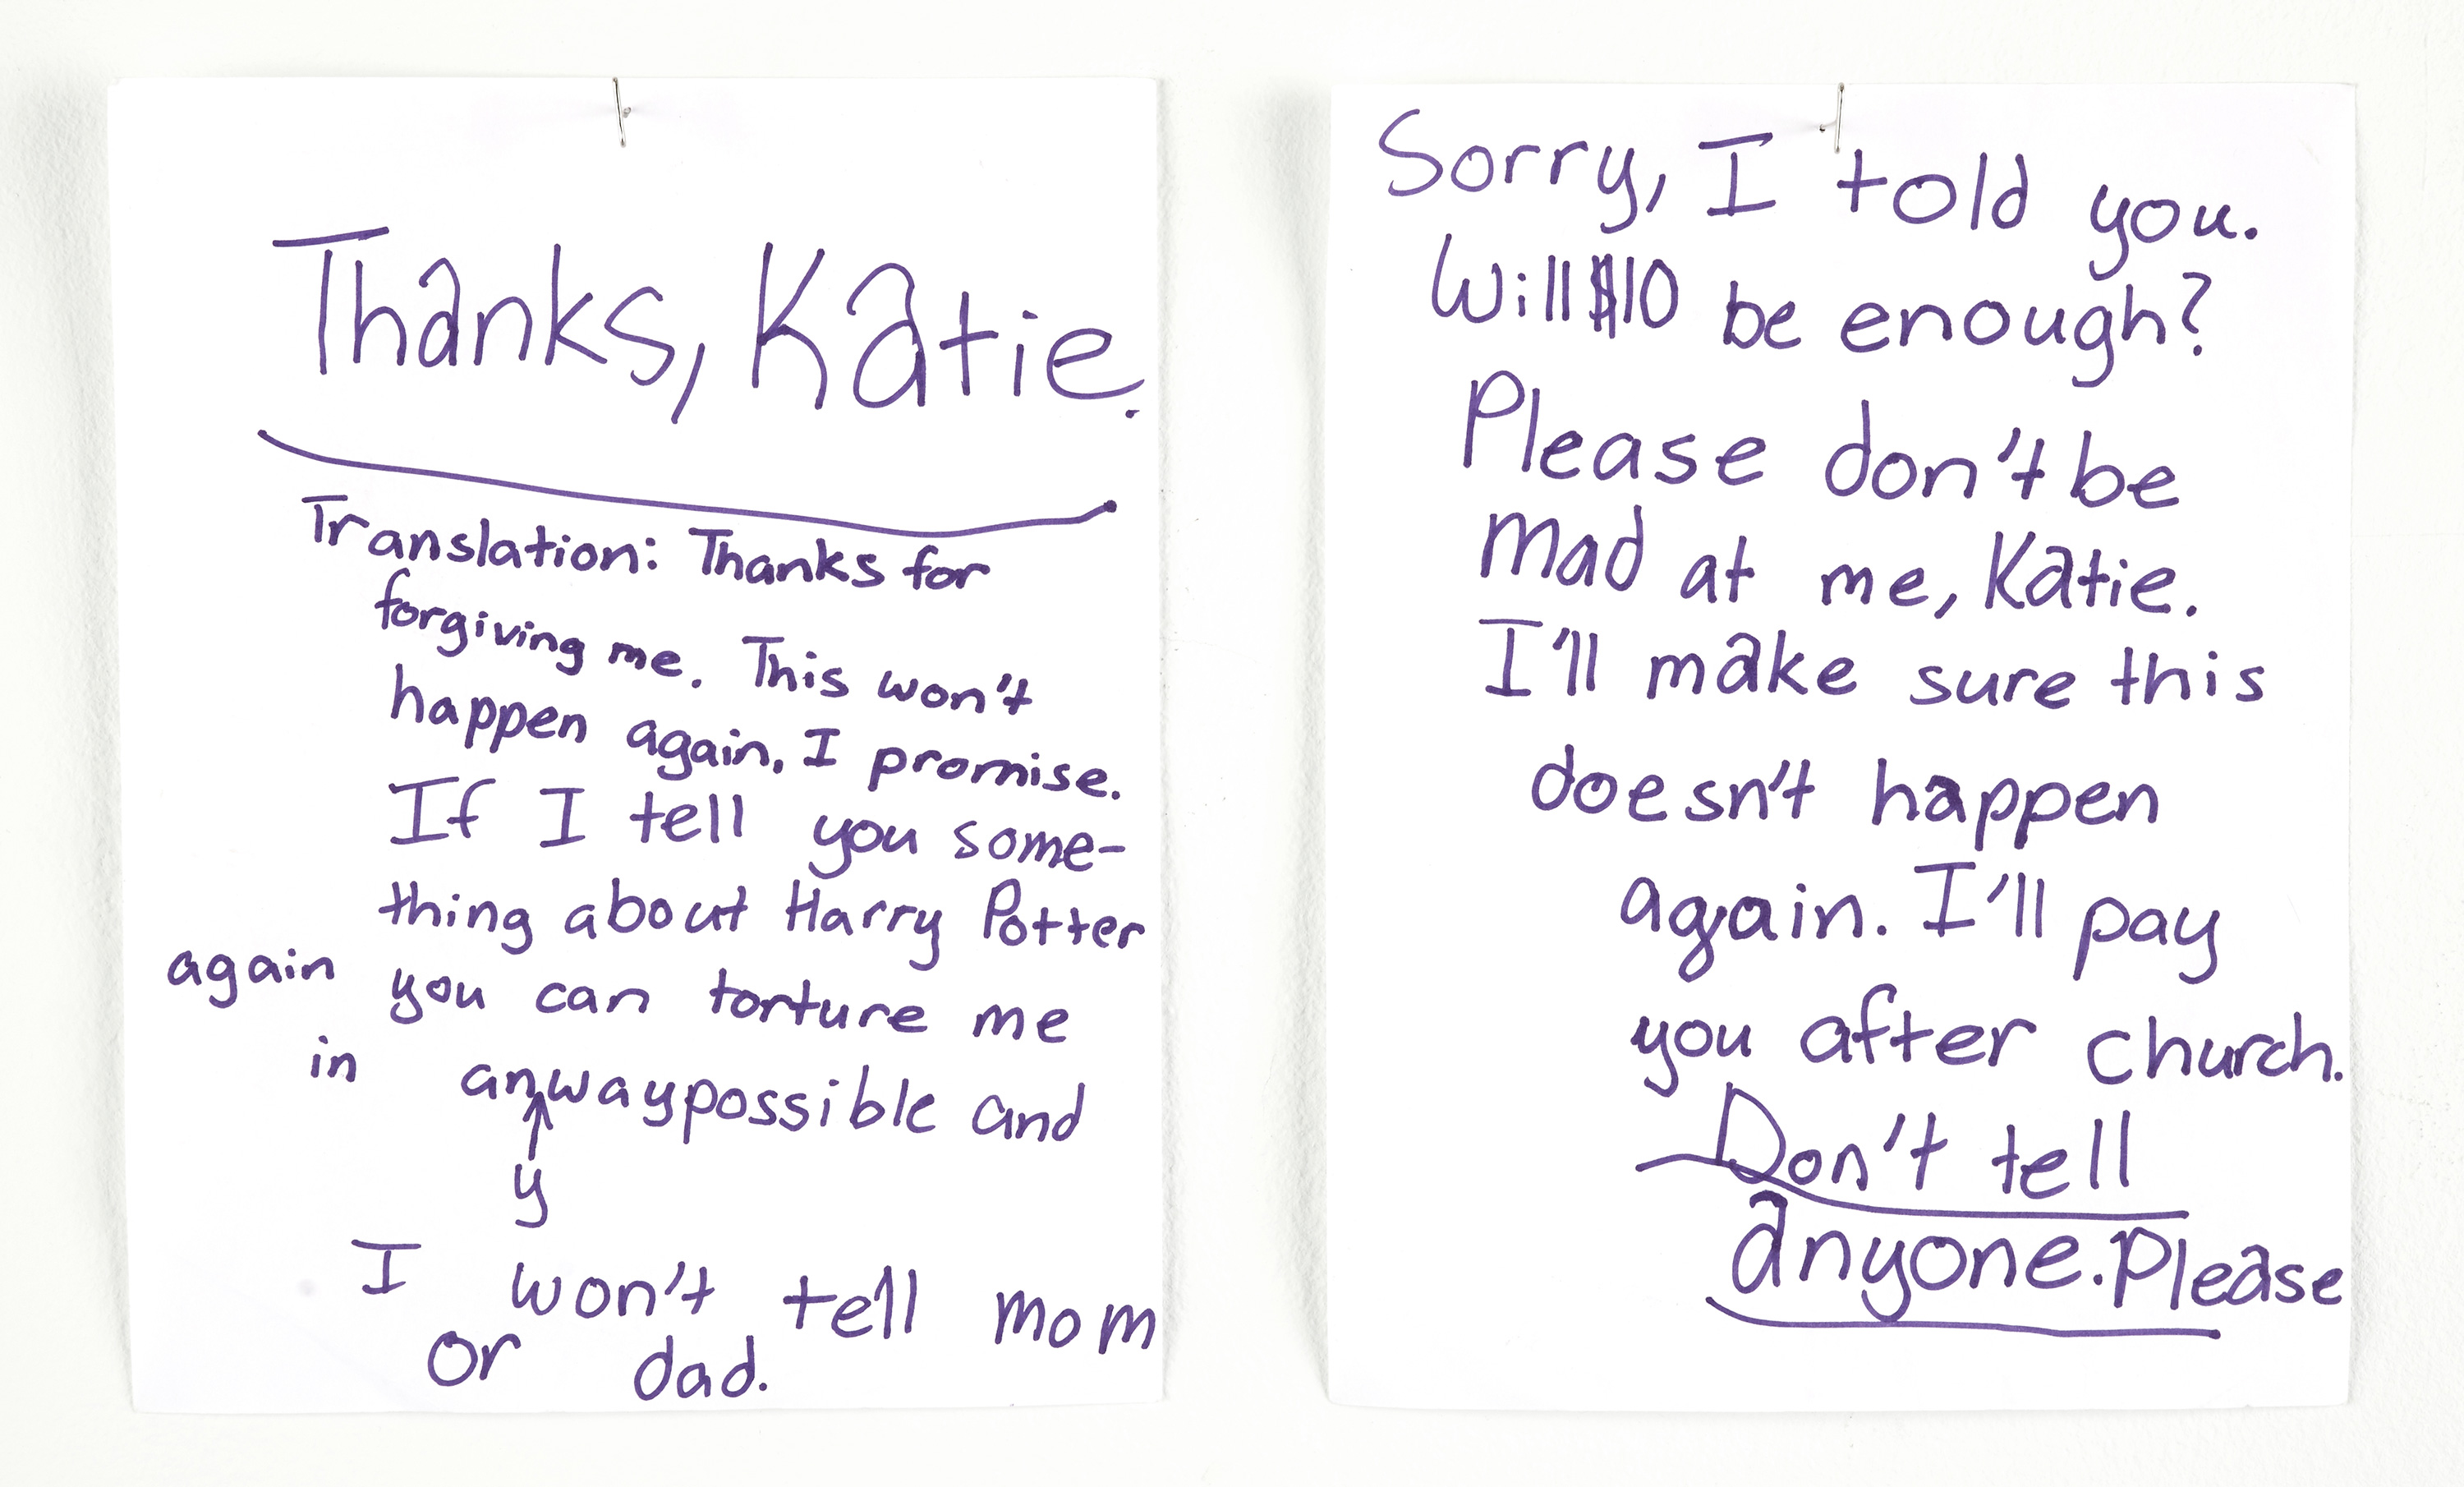 Thanks, Katie.
Translation: Thanks for
forgiving me. This won't
happen again, I promise.
If I tell you some-
thing about Harry Potter
again you can torture me
in anwaypossible and
y
I won't tell mom
or dad.
Sorry, I told you.
Will $10 be enough?
Please don't be
mad at me, Katie.
I'll make sure this
doesn't happen
again. I'll pay
you after church.
Don't tell
anyone. Please